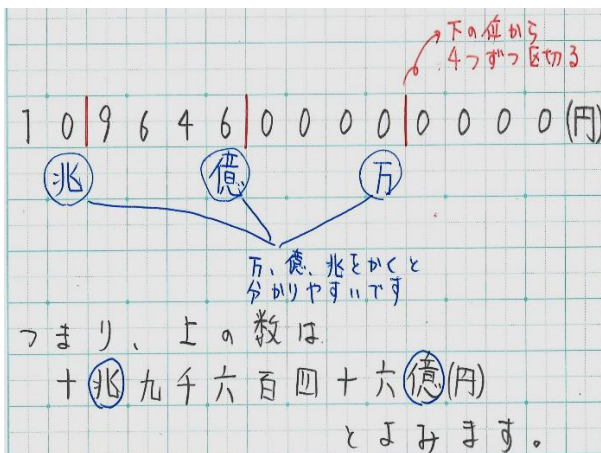 下の位から
4つずつ区切る
10|9646|0000|0000(円)
兆 億 万
万、億、兆をかくと
分かりやすいです
つまり、上の数は
十兆九千六百四十六億(円)
とよみます。